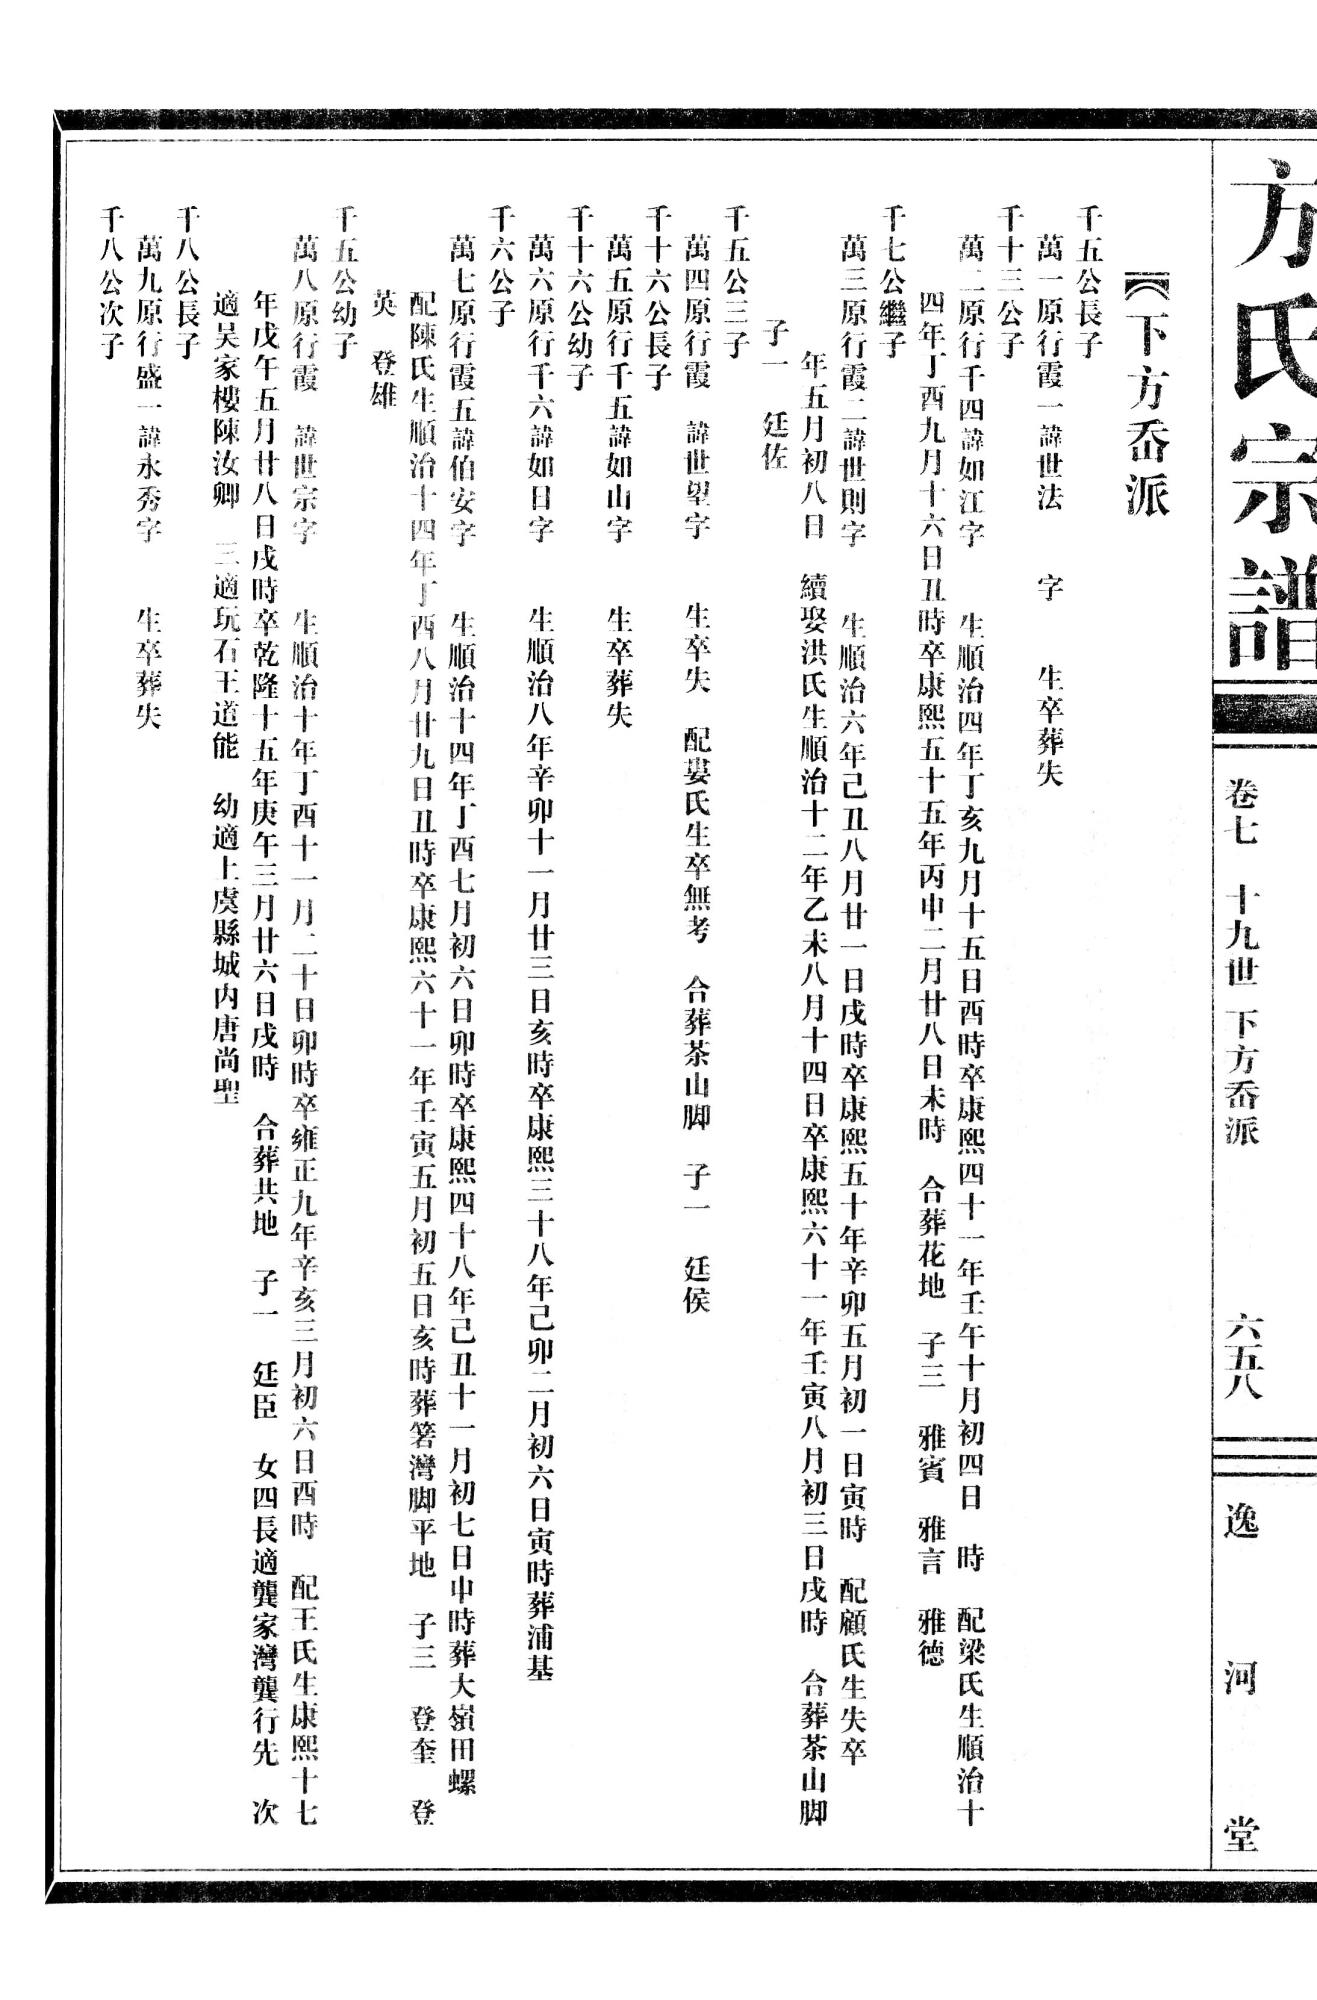 方氏宗譜
卷七　十九世　下方岙派
六五八
逸河堂
【下方岙派
千五公長子
萬一原行霞一諱世法　字　生卒葬失
千十三公子
萬二原行千四諱如江字　生順治四年丁亥九月十五日酉時卒康熙四十一年壬午十月初四日　時　配梁氏生順治十
四年丁酉九月十六日丑時卒康熙五十五年丙申二月廿八日未時　合葬花地　子三　雅賓　雅言　雅德
千七公繼子
萬三原行霞二諱世則字　生順治六年己丑八月廿一日戌時卒康熙五十年辛卯五月初一日寅時　配顧氏生失卒
年五月初八日　續娶洪氏生順治十二年乙未八月十四日卒康熙六十一年壬寅八月初三日戌時　合葬茶山脚
子一　廷佐
千五公三子
萬四原行霞　諱世望字　生卒失　配婁氏生卒無考　合葬茶山脚　子一　廷侯
千十六公長子
萬五原行千五諱如山字　生卒葬失
千十六公幼子
萬六原行千六諱如日字　生順治八年辛卯十一月廿三日亥時卒康熙三十八年己卯二月初六日寅時葬浦基
千六公子
萬七原行霞五諱伯安字　生順治十四年丁酉七月初六日卯時卒康熙四十八年己丑十一月初七日申時葬大嶺田螺
配陳氏生順治十四年丁酉八月廿九日丑時卒康熙六十一年壬寅五月初五日亥時葬箬灣脚平地　子三　登奎　登
英　登雄
千五公幼子
萬八原行霞　諱世宗字　生順治十年丁酉十一月二十日卯時卒雍正九年辛亥三月初六日酉時　配王氏生康熙十七
年戊午五月廿八日戌時卒乾隆十五年庚午三月廿六日戌時　合葬共地　子一　廷臣　女四長適龔家灣龔行先　次
適吴家樓陳汝卿　三適玩石王道能　幼適上虞縣城内唐尚聖
千八公長子
萬九原行盛一諱永秀字　生卒葬失
千八公次子